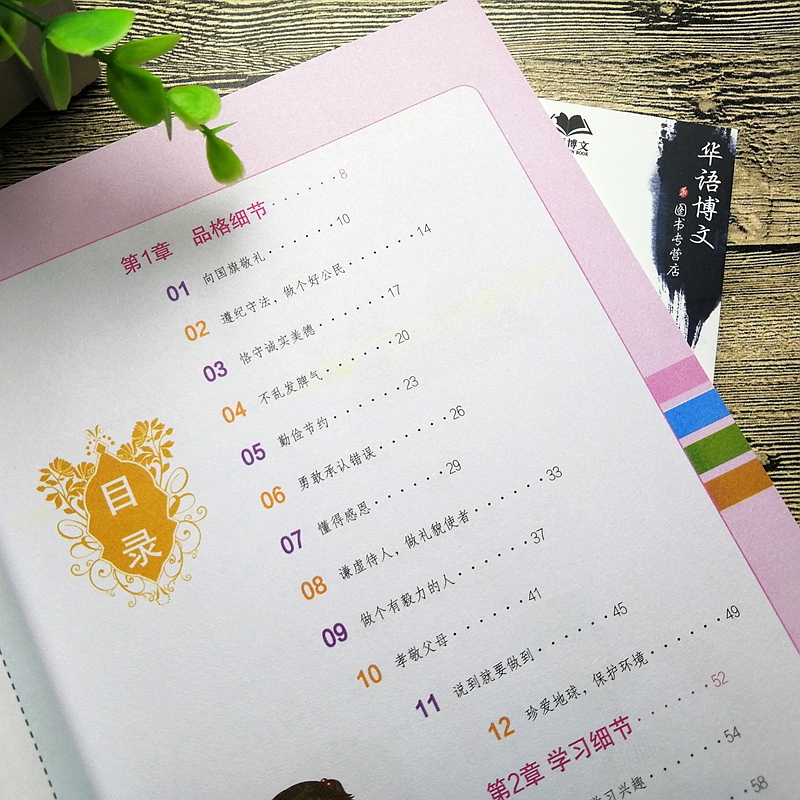 第1章 品格细节·······8
01 向国旗敬礼·······10
02 遵纪守法，做个好公民·······14
03 恪守诚实美德·······17
04 不乱发脾气·······20
05 勤俭节约·······23
06 勇敢承认错误·······26
07 懂得感恩·······29
08 谦虚待人，做礼貌使者·······33
09 做个有毅力的人·······37
10 孝敬父母·······41
11 说到就要做到·······45
12 珍爱地球，保护环境·······49
第2章 学习细节·······52
学习兴趣·······54
58
目录
博文
BOOK
华语博文
图书专营店